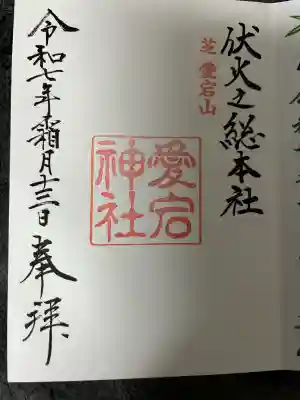 伏火之総本社
芝愛宕山
愛宕
神社
令和七年霜月十三日
奉拝